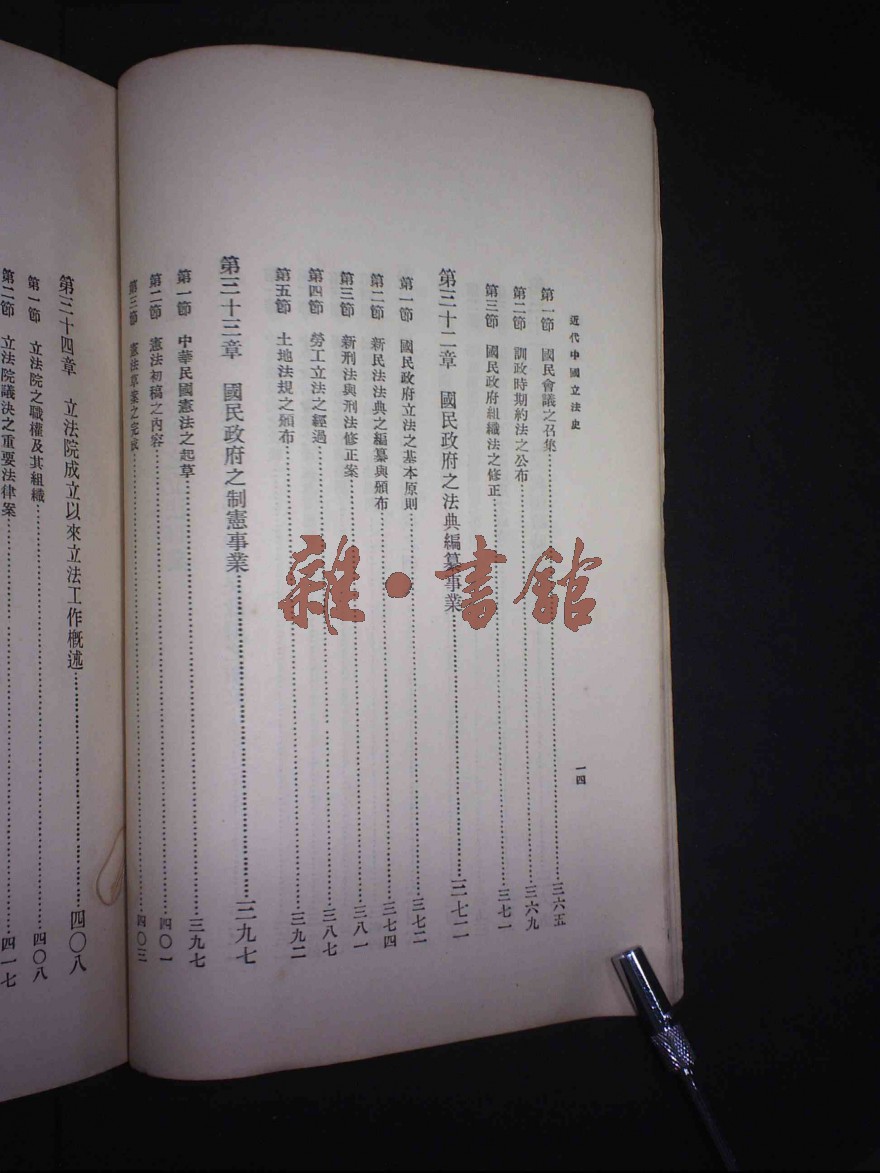 近代中國立法史
一四
第一節 國民會議之召集……三六五
第二節 訓政時期約法之公布……三六九
第三節 國民政府組織法之修正……三七一
第三十二章 國民政府之法典編纂事業……三七二
第一節 國民政府立法之基本原則……三七二
第二節 新民法法典之編纂與頒布……三七四
第三節 新刑法與刑法修正案……三八一
第四節 勞工立法之經過……三八七
第五節 土地法規之頒布……三九二
第三十三章 國民政府之制憲事業……三九七
第一節 中華民國憲法之起草……三九七
第二節 憲法初稿之內容……四〇一
第三節 憲法草案之完成……四〇三
第三十四章 立法院成立以來立法工作概述……四〇八
第一節 立法院之職權及其組織……四〇八
第二節 立法院議決之重要法律案……四一七
雜·書館